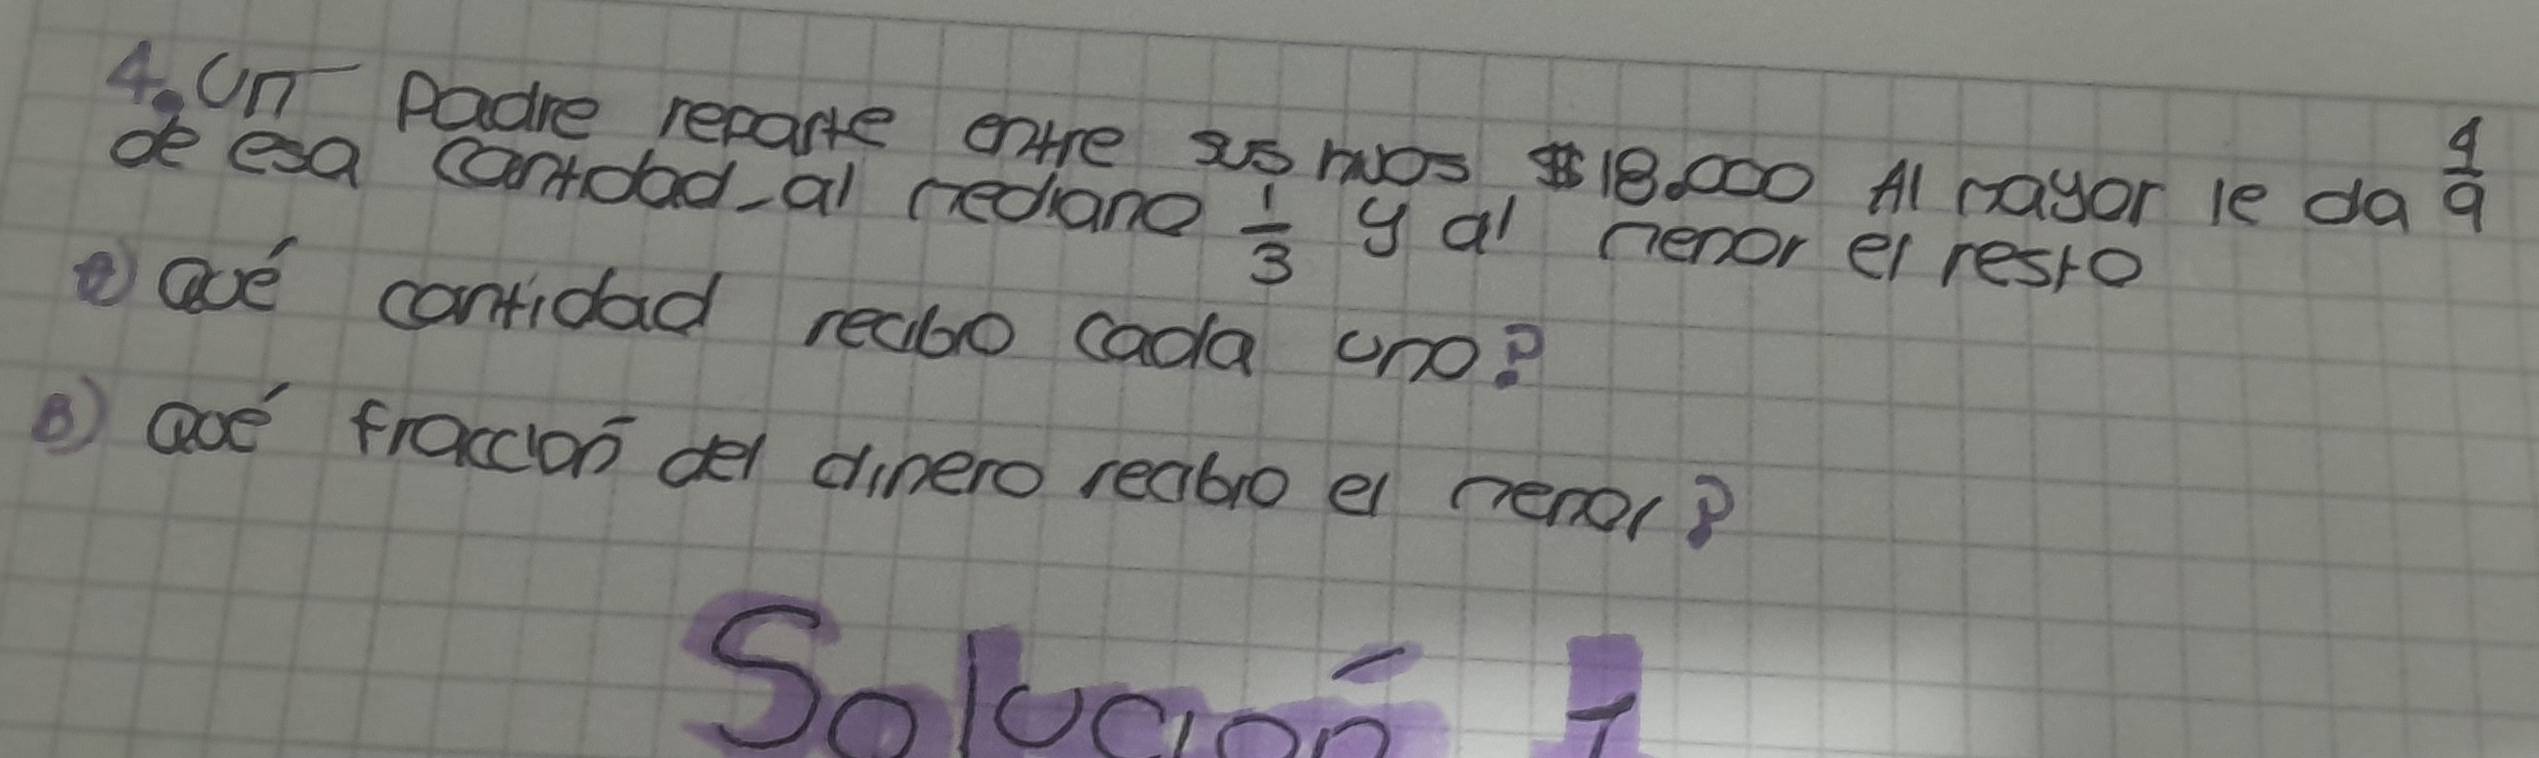 4. Un Padre reparte entre sus hijos $18.000 Al mayor le da 4/9
de esa cantidad - al mediano 1/3 y al menor el resto
A) Qué cantidad recibio cada uno?
B) Qué fracción del dinero recibio el menor?
Solución 1